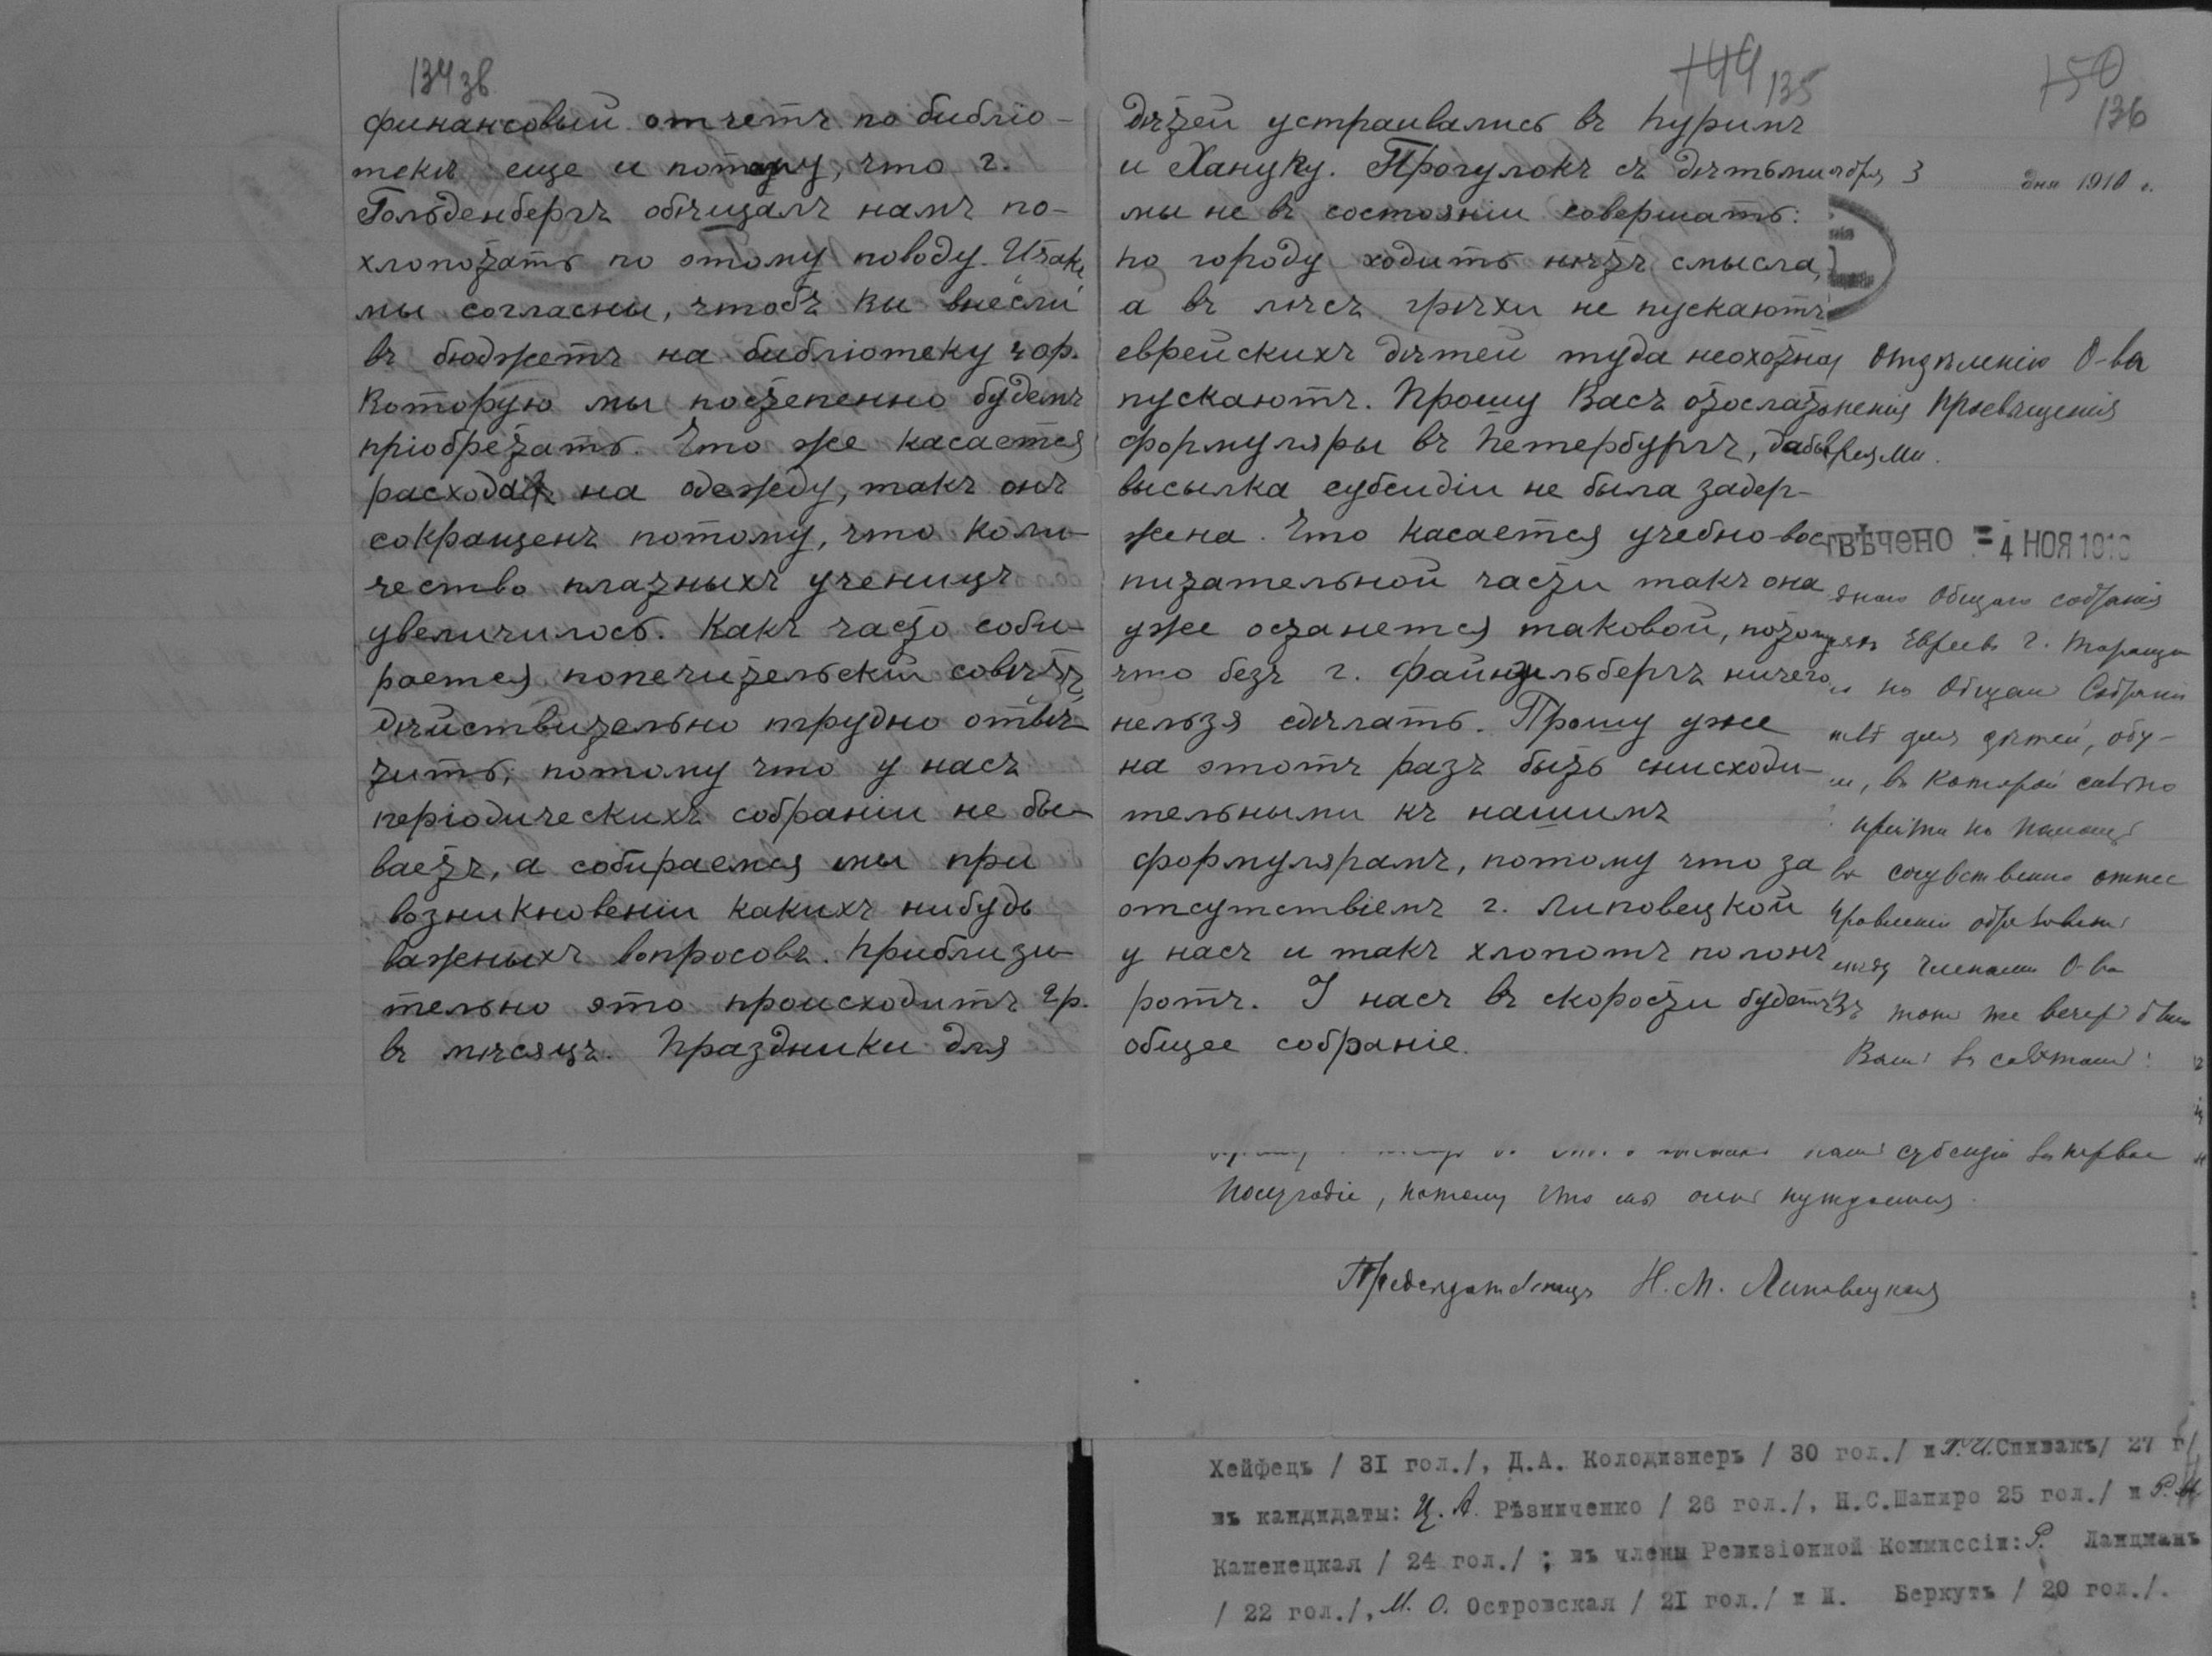 134 зв
финансовый отчетъ по библіо-
текѣ еще и потому, что г.
Гольденбергъ обѣщалъ намъ по-
хлопотать по этому поводу. Итакъ
мы согласны, чтобъ вы внесли
въ бюджетъ на библіотеку
которую мы постепенно будемъ
пріобрѣтать. Что же касается
расхода на одежду, такъ онъ
сокращенъ потому, что коли-
чество платныхъ ученицъ
увеличилось. Какъ часто соби-
рается попечительскій совѣтъ,
дѣйствительно трудно отвѣ-
тить, потому что у насъ
періодическихъ собраній не бы-
ваетъ, а собираемся мы при
возникновеніи какихъ нибудь
важныхъ вопросовъ. Приблизи-
тельно это происходитъ 2 р.
въ мѣсяцъ. Праздники для
144 135
дѣтей устраивались въ Пуримъ
и Хануку. Прогулокъ съ дѣтьми
мы не въ состояніи совершать:
по городу ходить нѣтъ смысла,
а въ лѣсъ грѣхи не пускаютъ
еврейскихъ дѣтей туда неохотно
пускаютъ. Прошу Васъ отослать
формуляры въ Петербургъ, дабы
высылка субсидіи не была задер-
жена. Что касается учебно-вос-
питательной части такъ она
уже останется таковой, потому
что безъ г. Файнзильбергъ ничего
нельзя сдѣлать. Прошу уже
на этотъ разъ быть снисходи-
тельными къ нашимъ
формулярамъ, потому что за
отсутствіемъ г. Липовецкой
у насъ и такъ хлопотъ полонъ
ротъ. У насъ въ скорости будетъ
общее собраніе.
150
136
ября 3 дня 1910 г.
Отдѣленію О-ва
ненія Просвѣщенія
вреями.
ТВѢЧЕНО = 4 НОЯ 1910
днаго Общаго собранія
Евреевъ г. Таращи
на Общемъ Собраніи
для дѣтей, обу-
и, въ которой
прійти на помощь
сочувственно отнес
Правленіи
между членами О-ва
тотъ же вечеръ
Вамъ въ
намъ субсидію за первое
полугодіе, потому что мы очень нуждаемся.
Предсѣдательница Н. М. Липовецкая
Хейфецъ / 31 гол./, Д.А. Колодизнеръ / 30 гол./ и Г.И. Спивакъ/ 27 г/
въ кандидаты: Ц. А. Рѣзниченко / 26 гол./, Н.С.Шапиро 25 гол./ и Р. М
Каменецкая / 24 гол./ ; въ члены Ревизіонной Коммиссіи: Р. Ландманъ
/ 22 гол./, М. О. Островская / 21 гол./ и И. Беркутъ / 20 гол./.